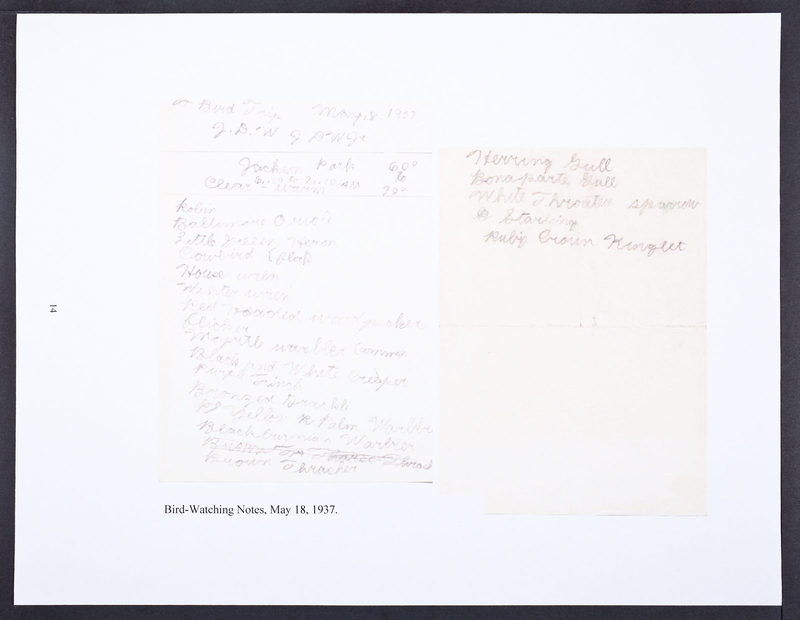 Bird Trip May 18, 1937
J.D.W J D W Jr
Jackson Park 60°
to
Clear warm 70°
Robin
Baltimore Oriole
Little Green Heron
Cowbird (flock
House wren
Winter wren
Red Headed woodpecker
Flicker
Myrtle warbler Common
Black and White Creeper
Purple Finch
Bronzed Grackle
Palm Warbler
Blackburnian Warbler
Brown Thrasher
Herring Gull
Bonaparte Gull
White Throated sparrow
Starling
Ruby Crown Kinglet
14
Bird-Watching Notes, May 18, 1937.